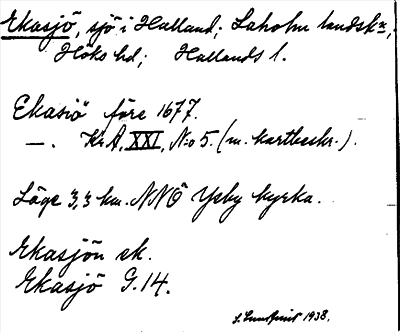 Ekasjö, sjö i Halland; Laholm landskn,
Höks hd; Hallands l.
Ekasiö före 1677.
—. Kr A, XXI, No 5. (m. kartbeskr.).
Läge 3,3 km. NNÖ Ysby kyrka.
Ekasjön ek.
Ekasjö G.14.
1938.